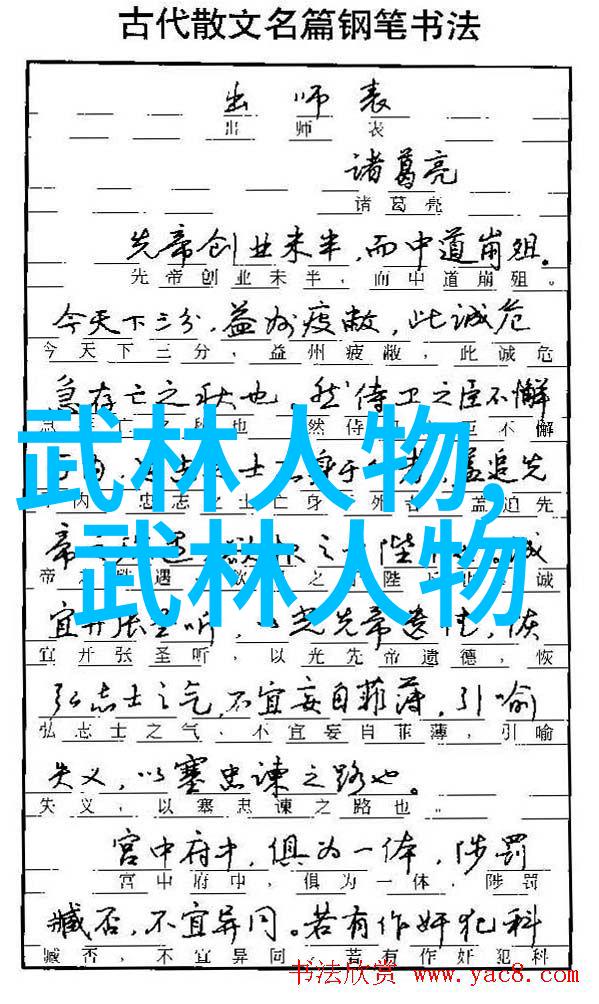 古代散文名篇钢笔书法
出师表
出师表
诸葛亮
诸葛亮
先帝创业未半,而中道崩殂。
先帝创业未半,而中道崩殂。
今天下三分,益州疲敝,此诚危
今天下三分,益州疲敝,此诚危
急存亡之秋也,然侍卫之臣不懈
亡之秋也 然侍 不懈
武林人物,
志 士 身于 盖追先
内 忠志之士亡身 外者 盖追先
武林人物
帝 遇 之 陛 诚
帝 遇 之 陛 诚
宜开张圣听,以光先帝遗德,恢
宜开张圣听,以光先帝遗德,恢
弘志士之气,不宜妄自菲薄,引喻
弘志士之气,不宜妄自菲薄,引喻
失义,以塞忠谏之路也。
失义,以塞忠谏之路也。
宫中府中,俱为一体,陟罚
宫中府中,俱为一体,陟罚
臧否,不宜异同。若有作奸犯科
臧否,不宜异同。若有作奸犯科
书法欣赏 www.yac8.com